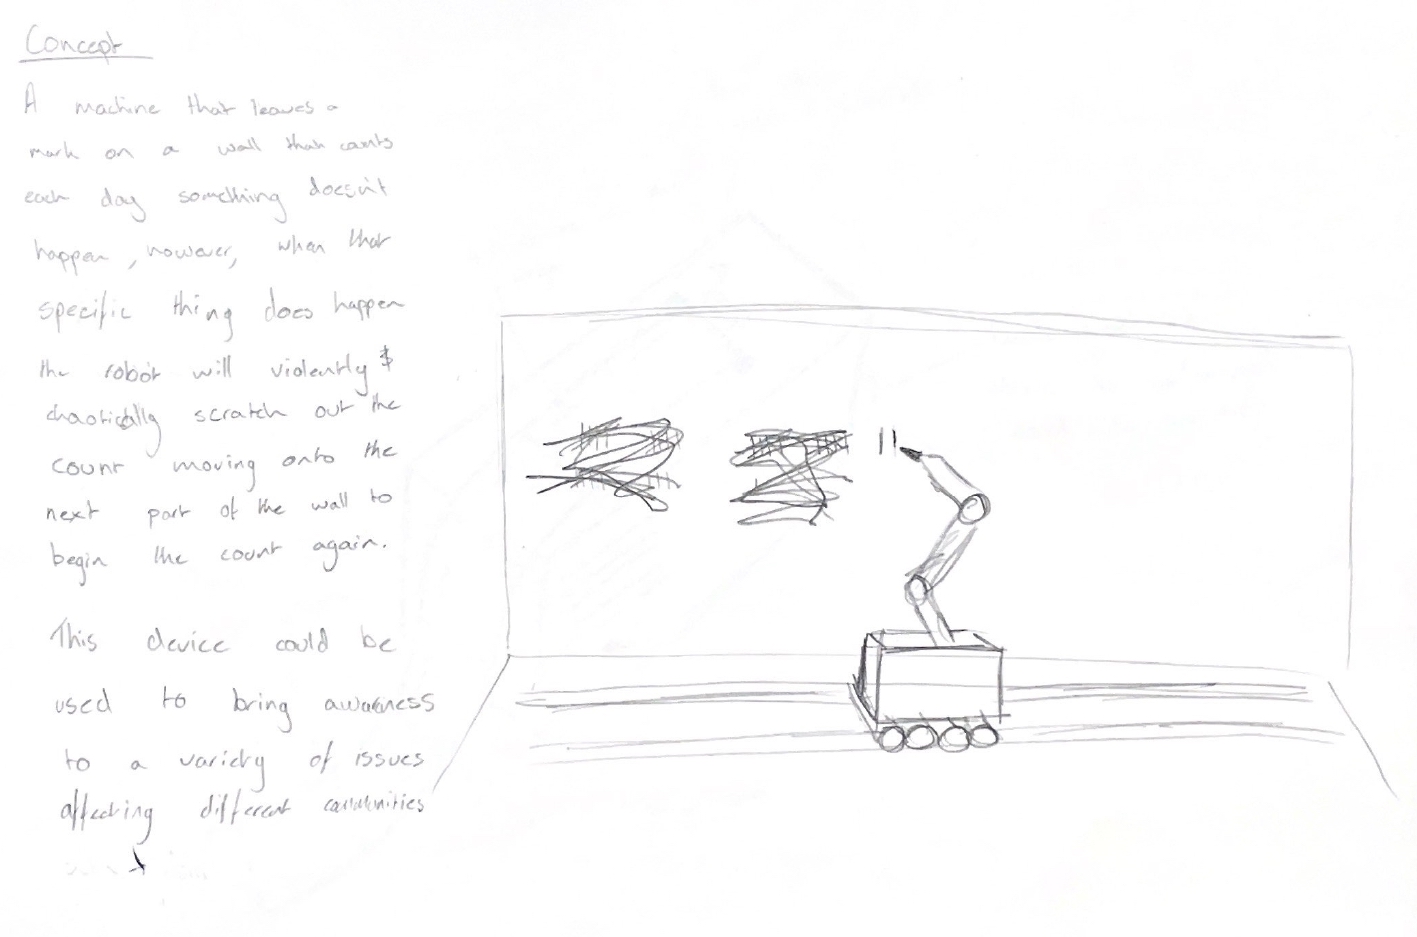 Concept
A machine that leaves a
mark on a wall that counts
each day something doesn't
happen, however, when that
specific thing does happen
the robot will violently &
chaotically scratch out the
count moving onto the
next part of the wall to
begin the count again.
This device could be
used to bring awareness
to a variety of issues
affecting different communities